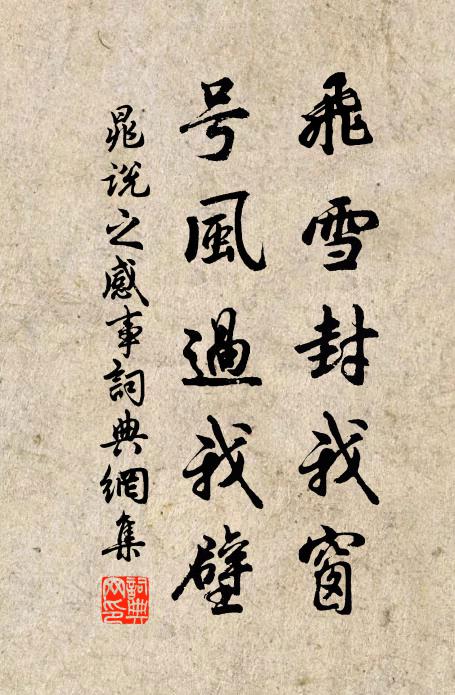 飛雪封我窗
号風過我壁
晁説之感事詞典網集
詞典网印